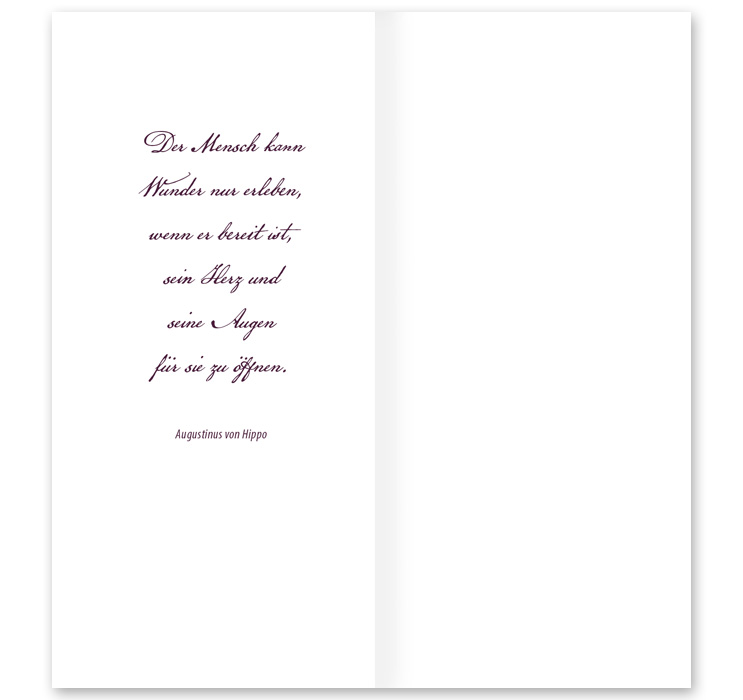 Der Mensch kann
Wunder nur erleben,
wenn er bereit ist,
sein Herz und
seine Augen
für sie zu öffnen.
Augustinus von Hippo